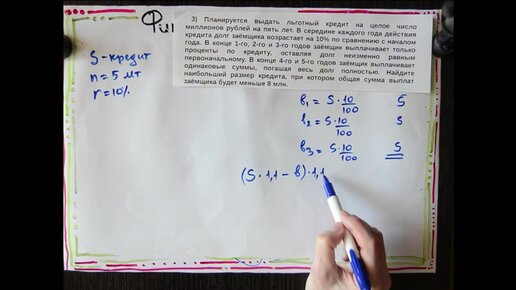 Фи1
3) Планируется выдать льготный кредит на целое число
миллионов рублей на пять лет. В середине каждого года действия
кредита долг заёмщика возрастает на 10% по сравнению с началом
года. В конце 1-го, 2-го и 3-го годов заёмщик выплачивает только
проценты по кредиту, оставляя долг неизменно равным
первоначальному. В конце 4-го и 5-го годов заёмщик выплачивает
одинаковые суммы, погашая весь долг полностью. Найдите
наибольший размер кредита, при котором общая сумма выплат
заёмщика будет меньше 8 млн.
S - кредит
n = 5 лет
r = 10%
b₁ = S · 10/100 S
b₂ = S · 10/100 S
b₃ = S · 10/100 S
(S · 1,1 − b) · 1,1